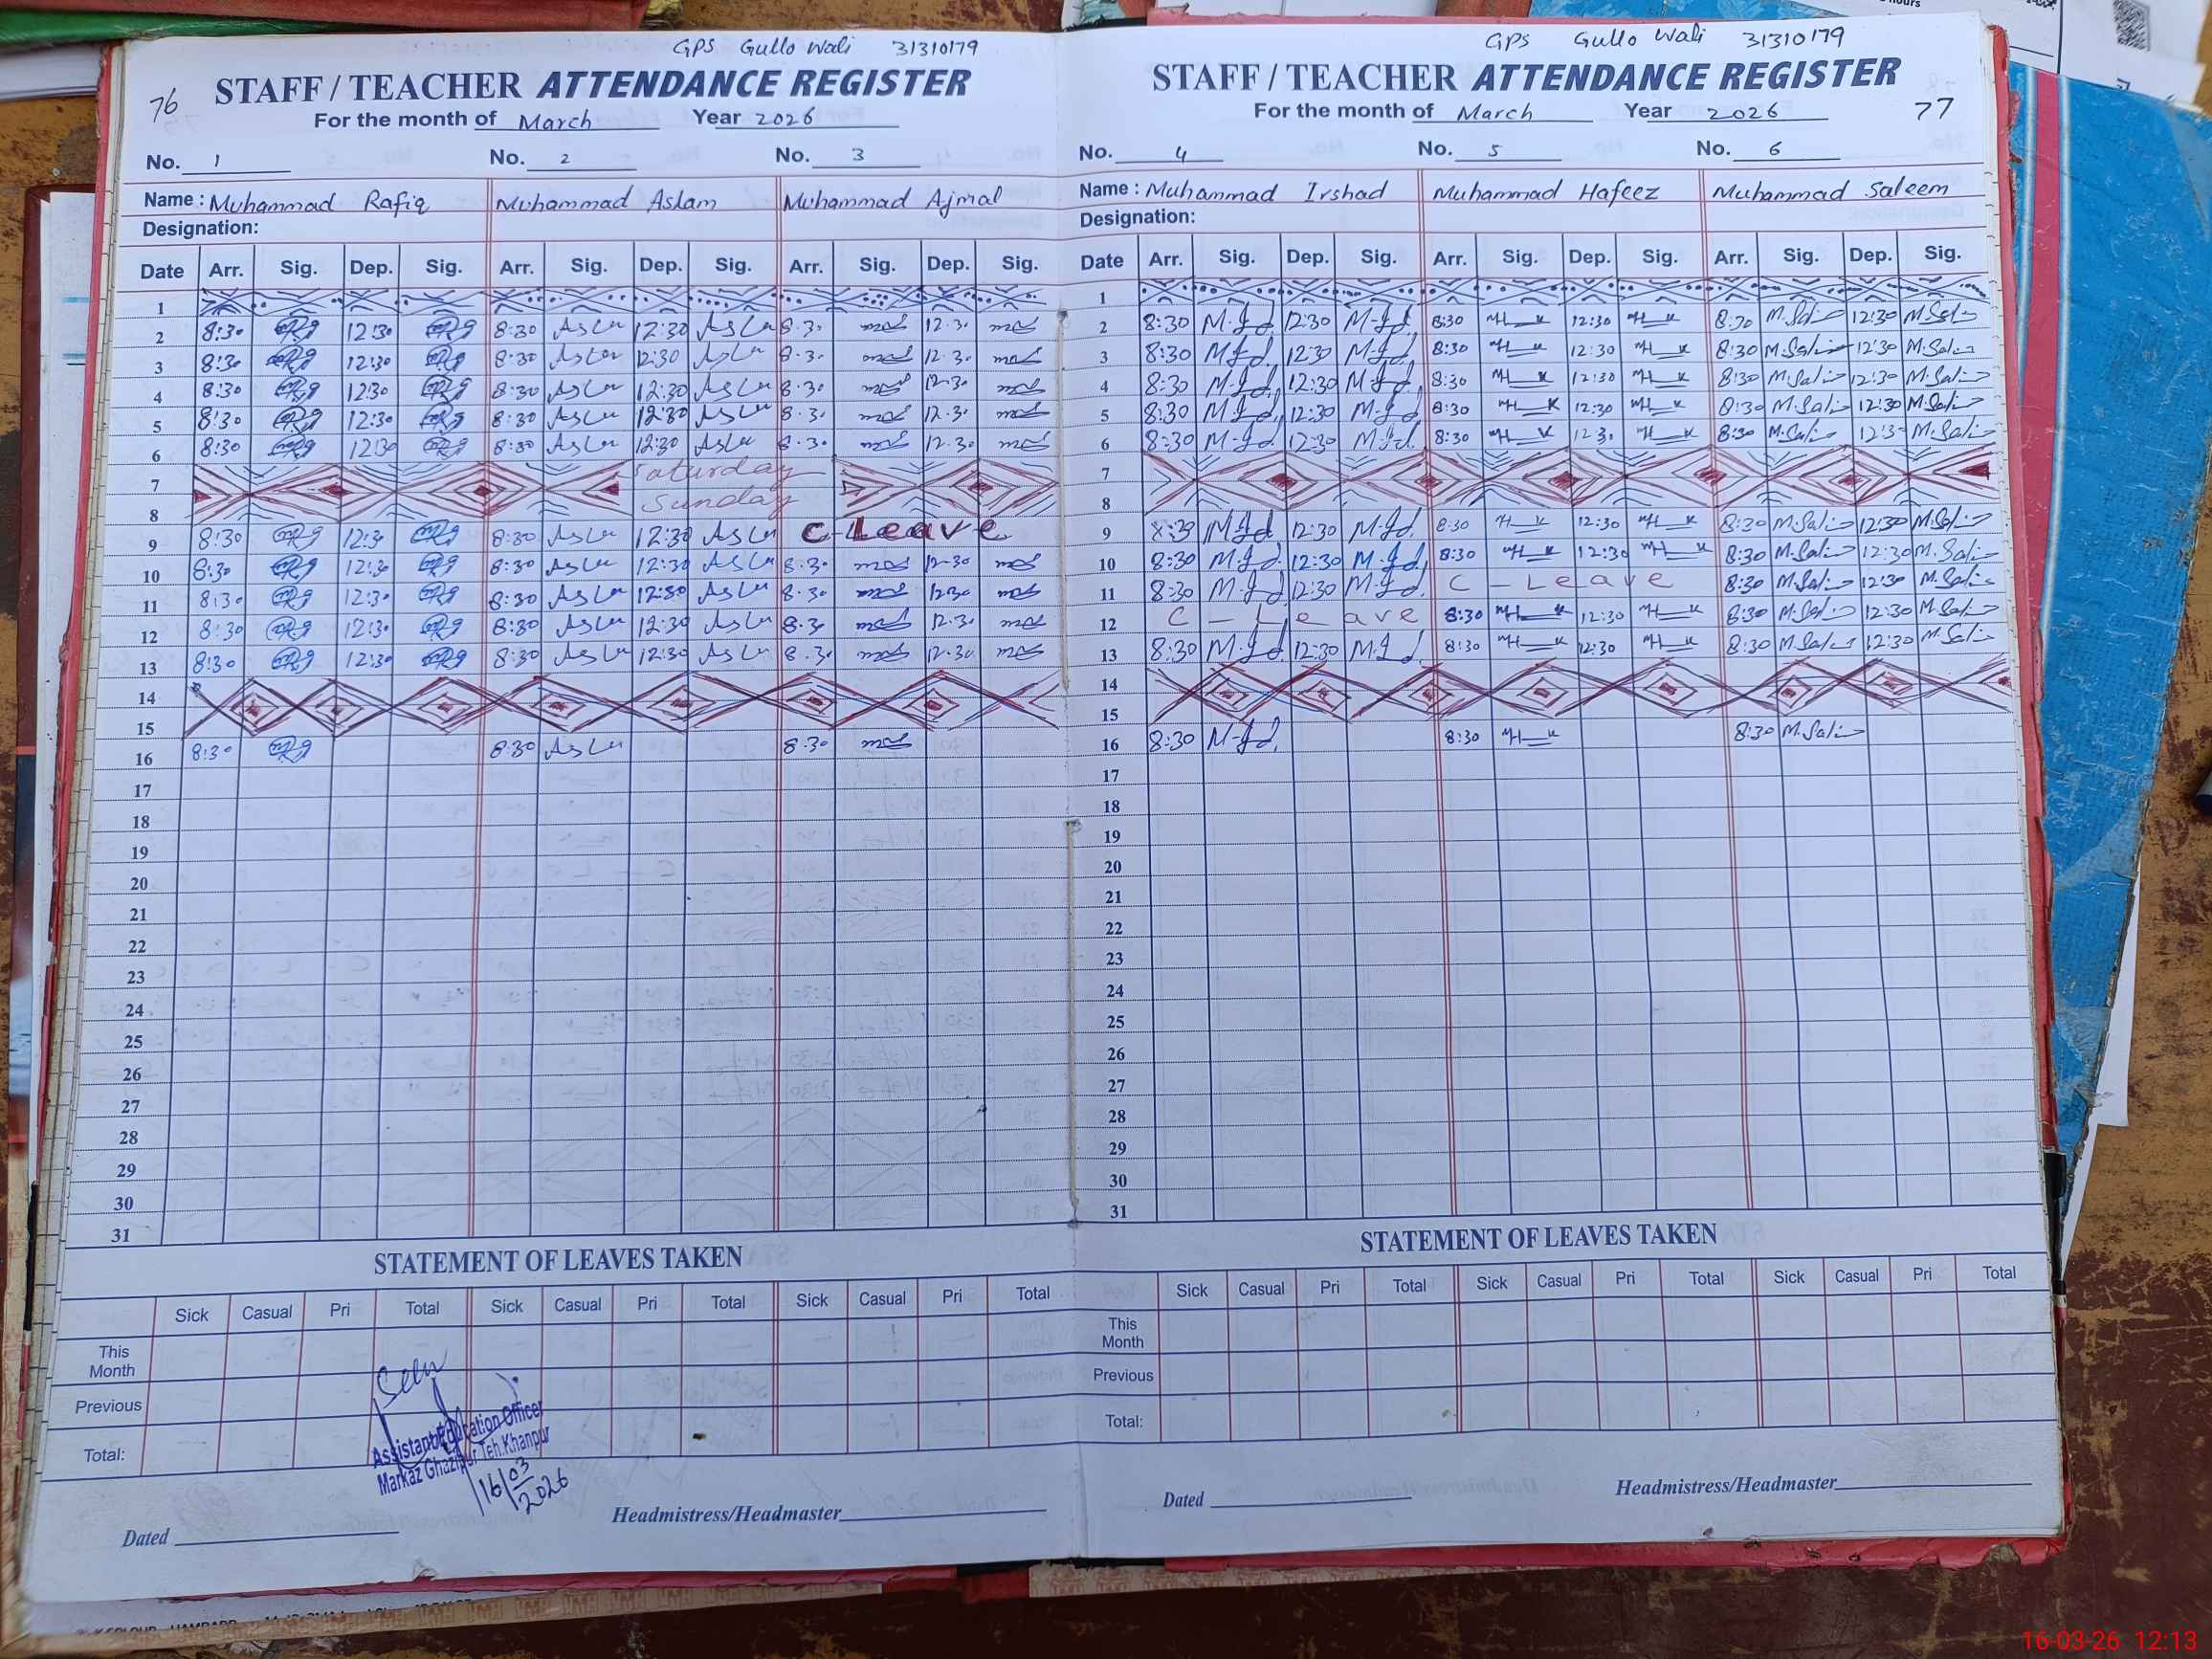 GPS Gullo Wali 31310179
76 STAFF / TEACHER ATTENDANCE REGISTER
For the month of March Year 2026
No. 1 No. 2 No. 3
Name : Muhammad Rafiq Muhammad Aslam Muhammad Ajmal
Designation:
Date Arr. Sig. Dep. Sig. Arr. Sig. Dep. Sig. Arr. Sig. Dep. Sig.
1
2 8:30 12:30 8:30 Aslm 12:30 Aslm 8.3. 12.3.
3 8:30 12:30 8:30 Aslm 12:30 Aslm 8.3. 12.3.
4 8:30 12:30 8:30 Aslm 12:30 Aslm 8.3. 12.3.
5 8:30 12:30 8:30 Aslm 12:30 Aslm 8.3. 12.3.
6 8:30 12:30 8:30 Aslm 12:30 Aslm 8.3. 12.3.
7 Saturday
8 Sunday
9 8:30 12:30 8:30 Aslm 12:30 Aslm C-Leave
10 8:30 12:30 8:30 Aslm 12:30 Aslm 8.3. 12.30
11 8:30 12:30 8:30 Aslm 12:30 Aslm 8.30 12.30
12 8:30 12:30 8:30 Aslm 12:30 Aslm 8.3. 12.3.
13 8:30 12:30 8:30 Aslm 12:30 Aslm 8.3. 12.30
14
15
16 8:30 8:30 Aslm 8.30
17
18
19
20
21
22
23
24
25
26
27
28
29
30
31
STATEMENT OF LEAVES TAKEN
Sick Casual Pri Total Sick Casual Pri Total Sick Casual Pri Total
This Month
Previous
Total:
Seen
Assistant Education Officer
Markaz Ghazipur Teh.Khanpur
16/03/2026
Headmistress/Headmaster
Dated
GPS Gullo Wali 31310179
STAFF / TEACHER ATTENDANCE REGISTER
For the month of March Year 2026 77
No. 4 No. 5 No. 6
Name : Muhammad Irshad Muhammad Hafeez Muhammad Saleem
Designation:
Date Arr. Sig. Dep. Sig. Arr. Sig. Dep. Sig. Arr. Sig. Dep. Sig.
1
2 8:30 M.Id 12:30 M.Id 8:30 12:30 8:30 M.Salim 12:30 M.Salim
3 8:30 M.Id 12:30 M.Id 8:30 12:30 8:30 M.Salim 12:30 M.Salim
4 8:30 M.Id 12:30 M.Id 8:30 12:30 8:30 M.Salim 12:30 M.Salim
5 8:30 M.Id 12:30 M.Id 8:30 12:30 8:30 M.Salim 12:30 M.Salim
6 8:30 M.Id 12:30 M.Id 8:30 12:3. 8:30 M.Salim 12:3 M.Salim
7
8
9 8:30 M.Id 12:30 M.Id 8:30 12:30 8:30 M.Salim 12:30 M.Salim
10 8:30 M.Id 12:30 M.Id 8:30 12:30 8:30 M.Salim 12:30 M.Salim
11 8:30 M.Id 12:30 M.Id C - Leave 8:30 M.Salim 12:30 M.Salim
12 C - Leave 8:30 12:30 8:30 M.Salim 12:30 M.Salim
13 8:30 M.Id 12:30 M.Id 8:30 12:30 8:30 M.Salim 12:30 M.Salim
14
15
16 8:30 M.Id 8:30 8:30 M.Salim
17
18
19
20
21
22
23
24
25
26
27
28
29
30
31
STATEMENT OF LEAVES TAKEN
Sick Casual Pri Total Sick Casual Pri Total Sick Casual Pri Total
This Month
Previous
Total:
Dated Headmistress/Headmaster
16-03-26 12:13